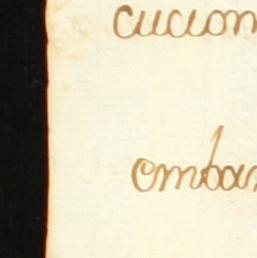 cucion
emban